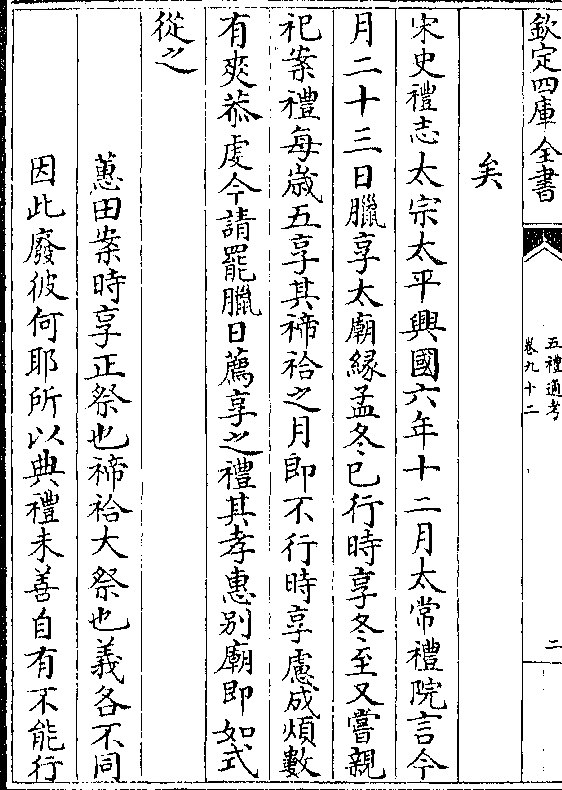 欽定四庫全書
五禮通考
卷九十二
二
矣
宋史禮志太宗太平興國六年十二月太常禮院言今
月二十三日臘享太廟緣孟冬已行時享冬至又嘗親
祀案禮每歲五享其禘祫之月即不行時享慮成煩數
有爽恭虔今請罷臘日薦享之禮其孝惠别廟即如式
從之
蕙田案時享正祭也禘祫大祭也義各不同
因此廢彼何耶所以典禮未善自有不能行